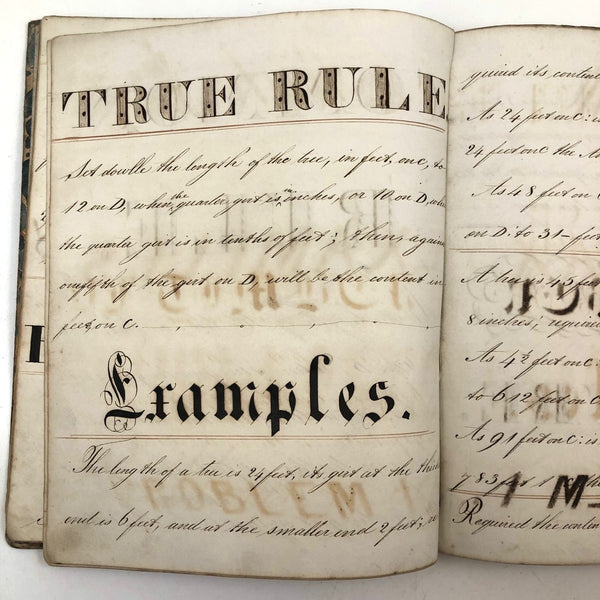 TRUE RULE
Set dowlle the length of the tree, in feet, on c, to
12 on D, when the quarter girt is in inches, or 10 on D, when
the quarter girt is in tenths of feet; then, against
onefifth of the girt on D, will be the content in
feet, on C.
Examples.
The length of a tree is 24 feet, its girt at the thicker
end is 6 feet, and at the smaller end 2 feet; re
quired its content
As 24 feet on C: is
24 feet on C the
As 48 feet on C
on D. to 31 - feet
A tree is 45 feet
8 inches; required
As 4½ feet on C:
to 612 feet on C
As 91 feet on C: is
783 feet
Required the content